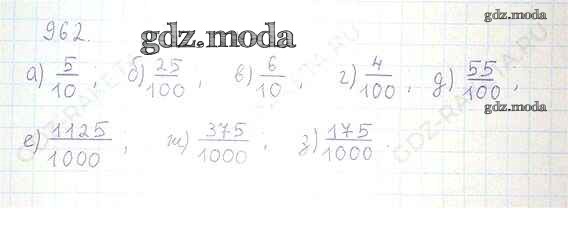 962.
gdz.moda
gdz.moda
а) 5/10 ; б) 25/100 , в) 6/10 ; г) 4/100 ; д) 55/100 ;
gdz.moda
е) 1125/1000 ; ж) 375/1000 ; з) 175/1000 .
GDZ-RAKETA.RU